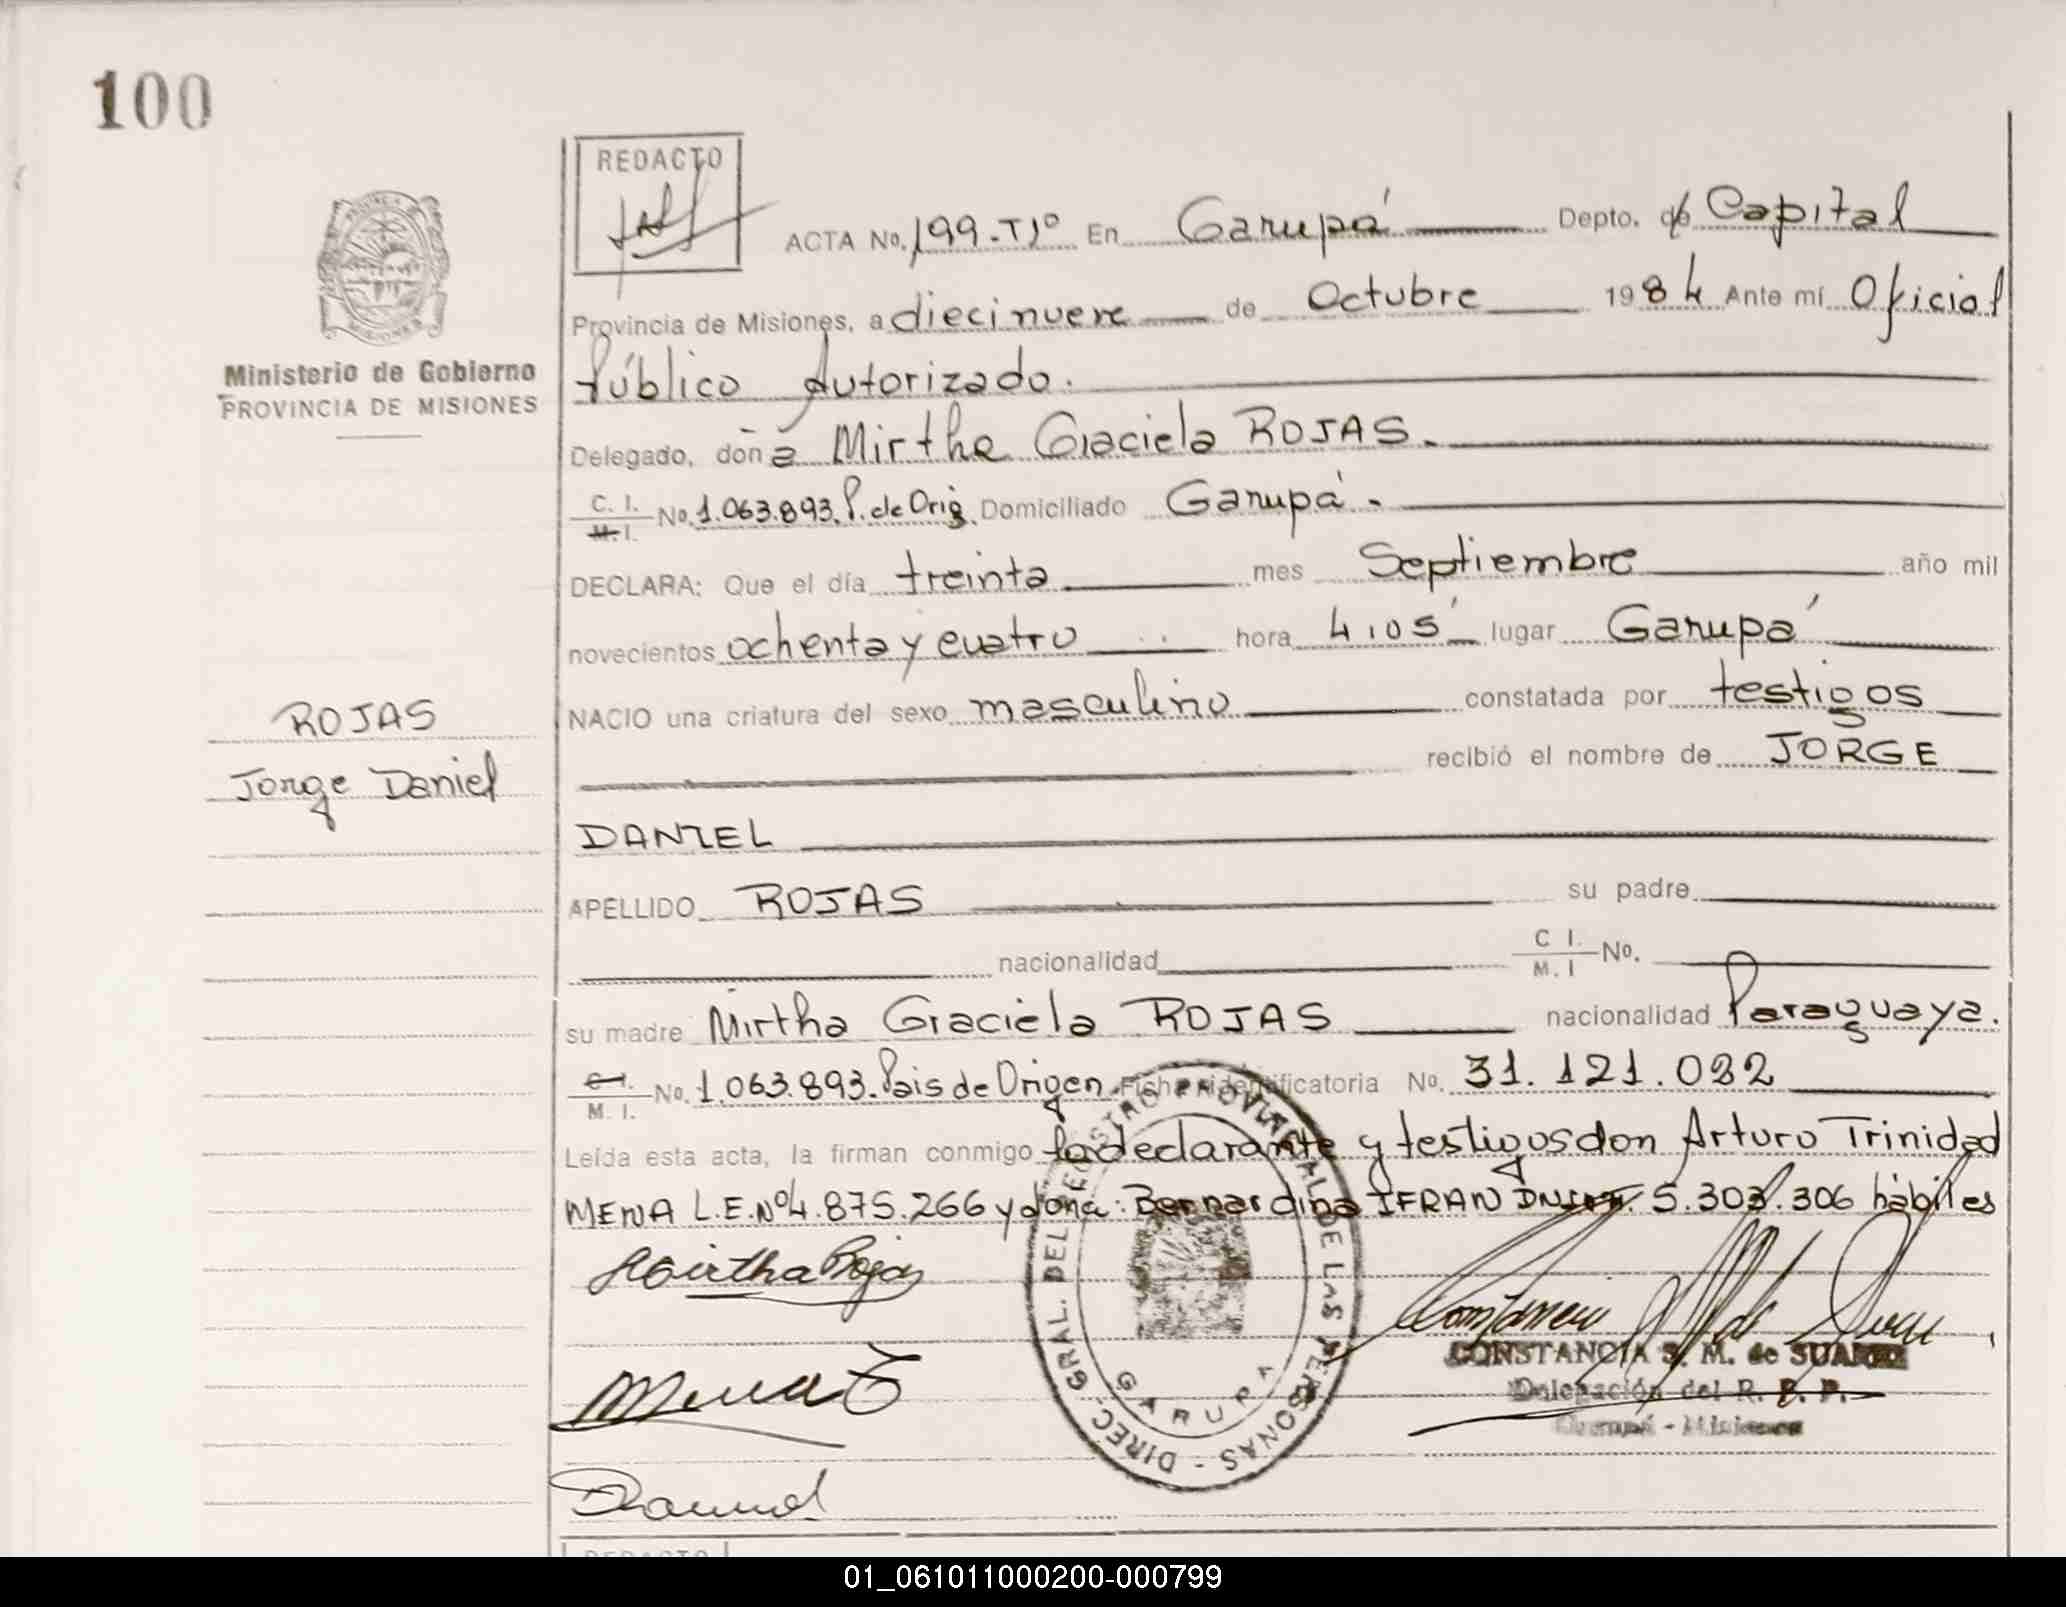 100
REDACTO
ACTA No. 199-T1º En Garupá Depto. de Capital
Provincia de Misiones, a diecinueve de Octubre 1984 Ante mí Oficial
Público Autorizado.
Ministerio de Gobierno
PROVINCIA DE MISIONES
Delegado, doña Mirtha Graciela ROJAS.
C. I.
M. I. No. 1.063.893. P. de Orig. Domiciliado Garupá.
DECLARA: Que el día treinta mes Septiembre año mil
novecientos ochenta y cuatro hora 4,05 lugar Garupá
NACIO una criatura del sexo masculino constatada por testigos
ROJAS
Jorge Daniel
recibió el nombre de JORGE
DANIEL
APELLIDO ROJAS su padre
nacionalidad C I. M. I No.
su madre Mirtha Graciela ROJAS nacionalidad Paraguaya.
C. I.
M. I. No. 1.063.893. Pais de Origen Ficha identificatoria No. 31.121.092
Leída esta acta, la firman conmigo la declarante y testigos don Arturo Trinidad
MENA L.E.Nº4.875.266 y doña: Bernardina IFRAN 5.303.306 hábiles
Mirtha Rojas
Mena
DIREC. GRAL. DEL REGISTRO PROVINCIAL DE LAS PERSONAS -
GARUPA
CONSTANCIA S. M. de SUAREZ
Delegación del R. P. P.
Garupá - Misiones
REDACTO
01_061011000200-000799